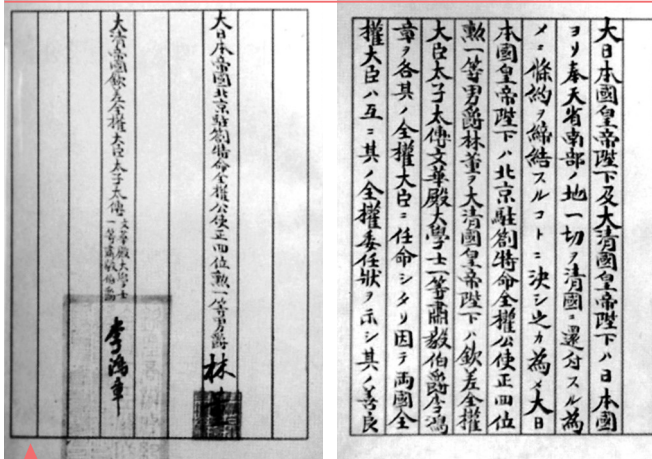 大日本國皇帝陛下及大清國皇帝陛下ハ日本國
ヨリ奉天省南部ノ地一切ヲ清國ニ還付スル為
メニ條約ヲ締結スルコトニ決シ之カ為メ大日
本國皇帝陛下ハ北京駐劄特命全權公使正四位
勲一等男爵林董ヲ大清國皇帝陛下ハ欽差全權
大臣太子太傅文華殿大學士一等肅毅伯爵李鴻
章ヲ各其ノ全權大臣ニ任命シタリ因テ両國全
權大臣ハ互ニ其ノ全權委任狀ヲ示シ其ノ善良
大日本帝國北京駐劄特命全權公使正四位勲一等男爵 林董
大清帝國欽差全權大臣太子太傅文華殿大學士一等肅毅伯爵 李鴻章